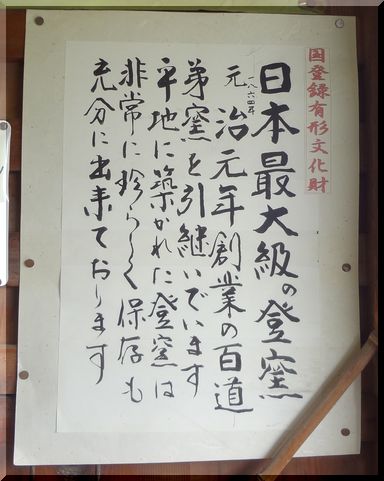 国登録有形文化財
日本最大級の登窯
一八六四年
元治元年創業の百道
第窯を引継いでいます
平地に築かれた登窯は
非常に珍らしく保存も
充分に出来ております